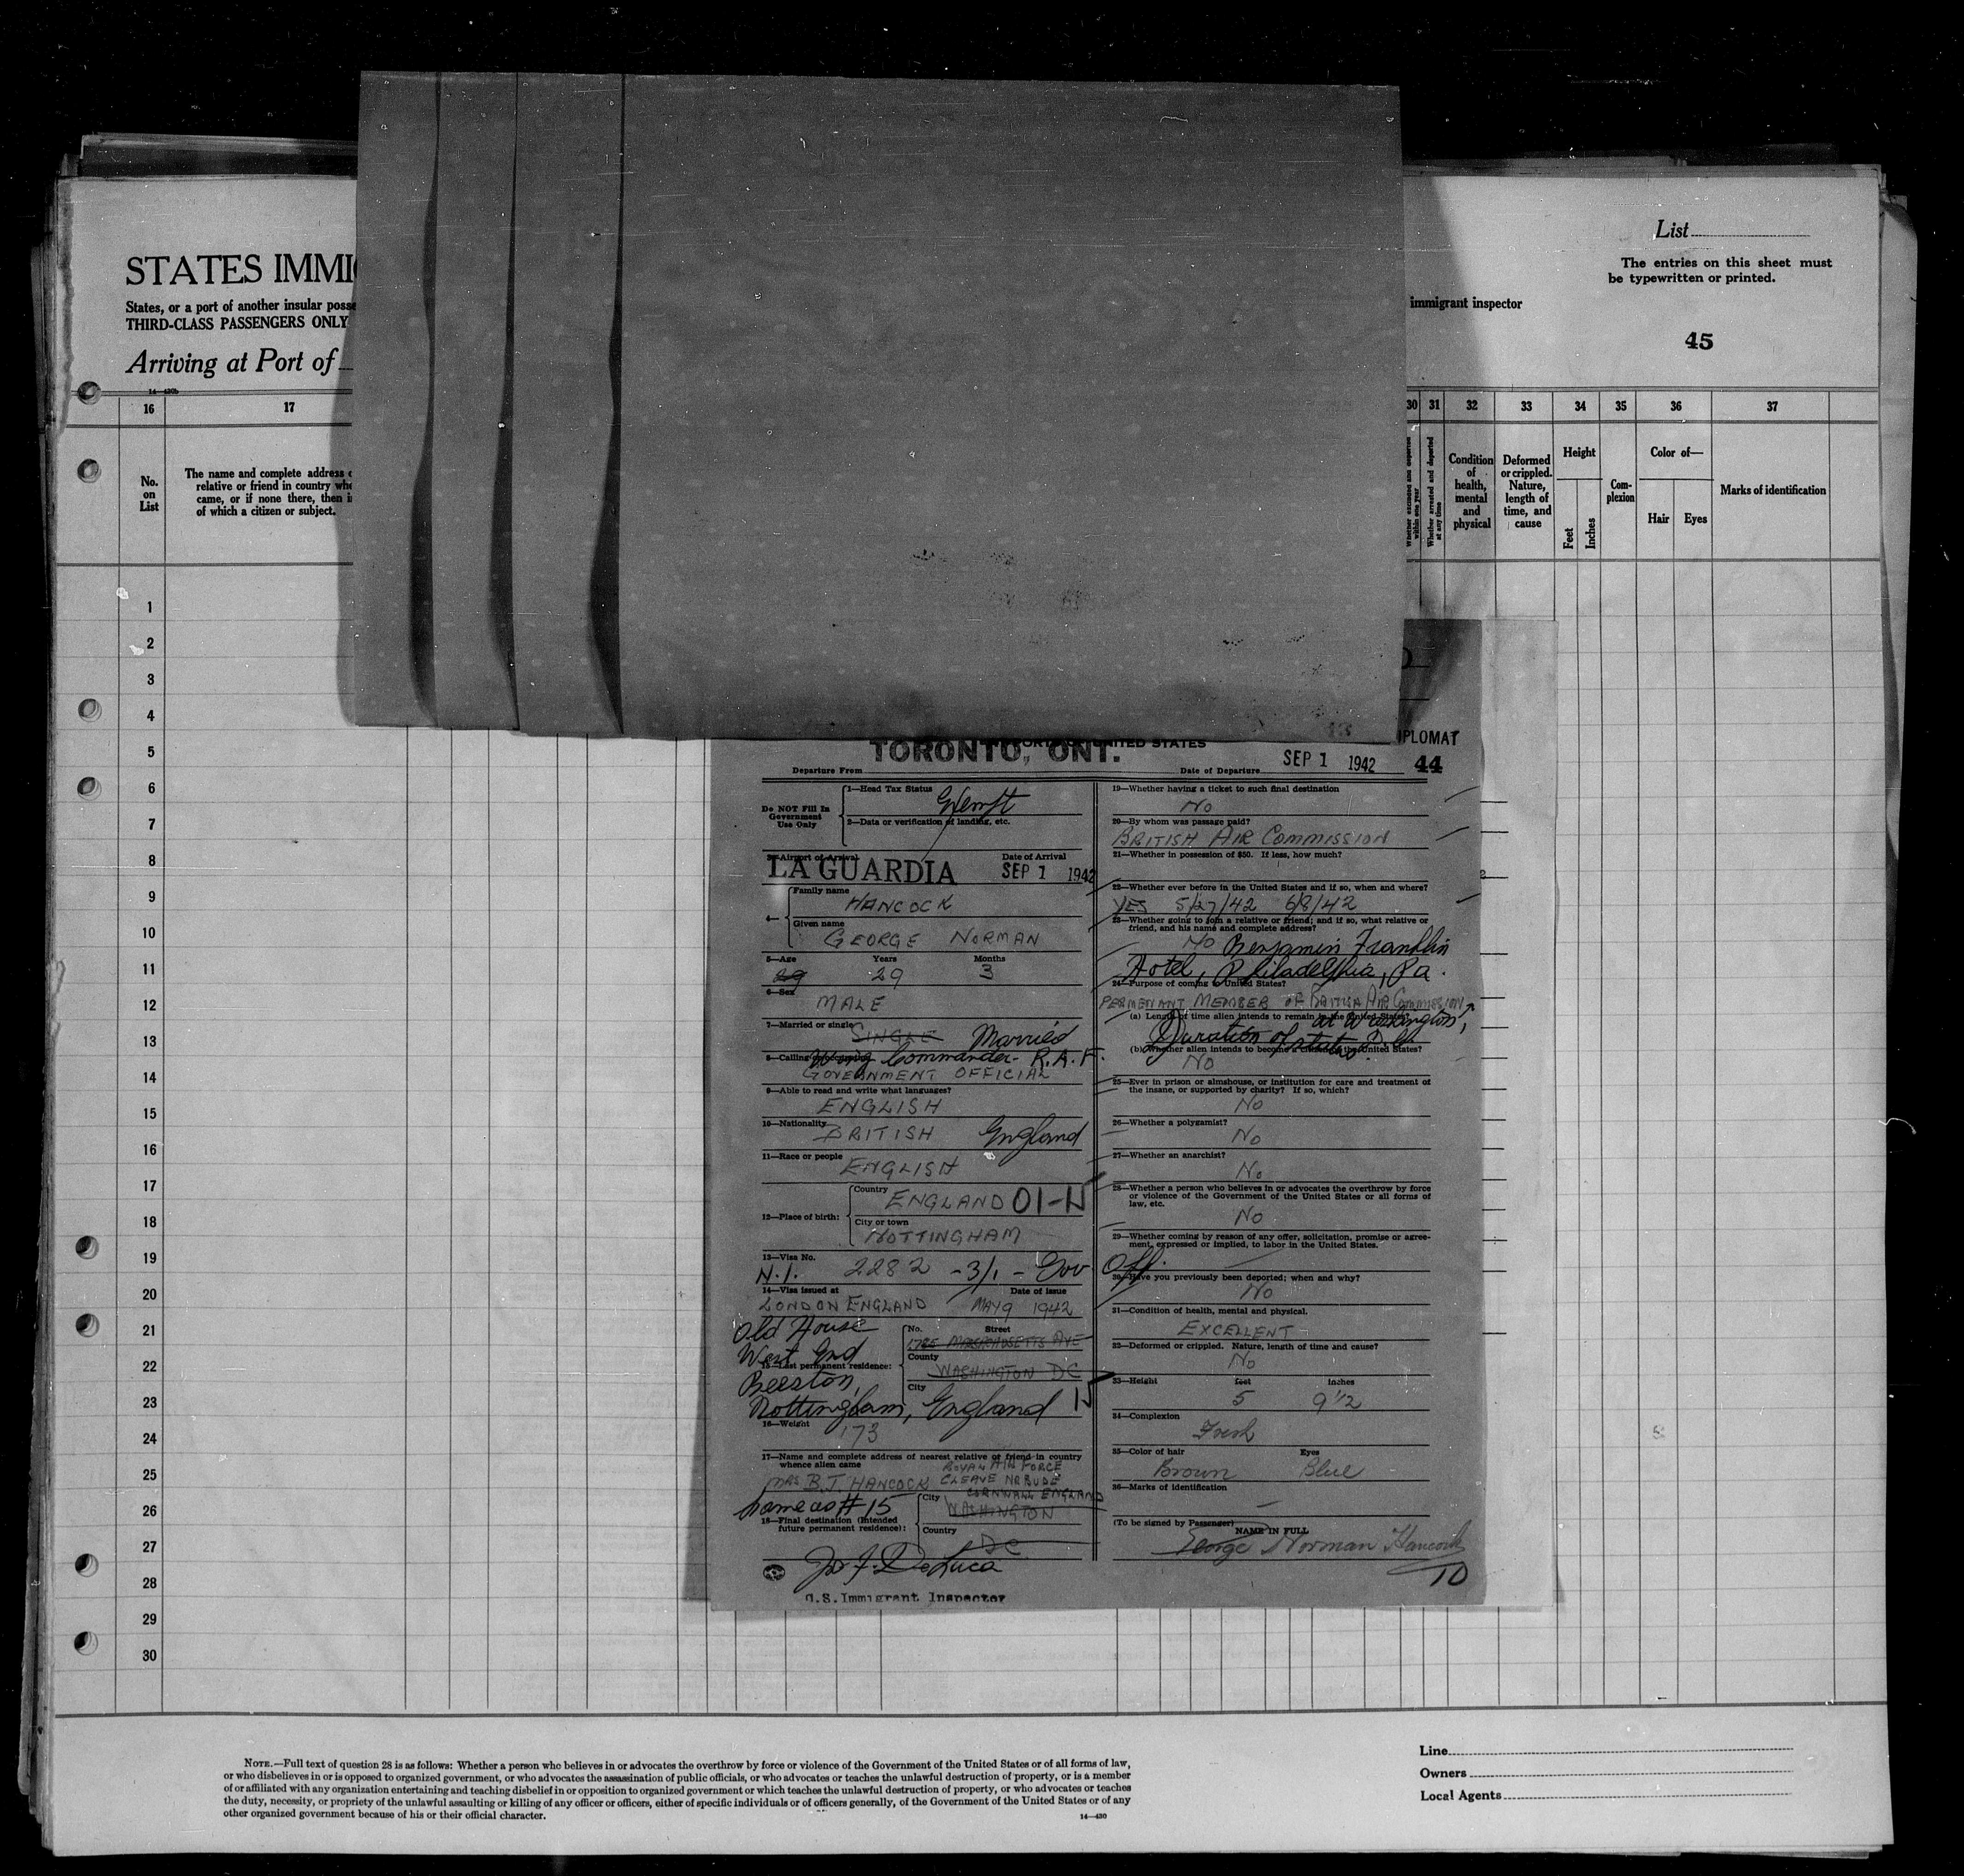 STATES IMMI
States, or a port of another insular posse
THIRD-CLASS PASSENGERS ONLY
Arriving at Port of
List
The entries on this sheet must
be typewritten or printed.
immigrant inspector
45
16 17 30 31 32 33 34 35 36 37
No.
on
List
The name and complete address
relative or friend in country
came, or if none there, then
of which a citizen or subject.
Whether arrested and deported
at any time
Condition
of
health,
mental
and
physical
Deformed
or crippled.
Nature,
length of
time, and
cause
Height
Feet Inches
Com-
plexion
Color of—
Hair Eyes
Marks of identification
1
2
3
4
5
6
7
8
9
10
11
12
13
14
15
16
17
18
19
20
21
22
23
24
25
26
27
28
29
30
UNITED STATES
IPLOMAT
TORONTO, ONT.
Departure From
Date of Departure SEP 1 1942
44
Do NOT Fill In
Government
Use Only
1—Head Tax Status
Exempt
2—Data or verification of landing, etc.
3—Airport of Arrival Date of Arrival
LA GUARDIA SEP 1 1942
4—
Family name
HANCOCK
Given name
GEORGE NORMAN
5—Age Years Months
29 29 3
6—Sex
MALE
7—Married or single
SINGLE Married
8—Calling or occupation
Wing Commander - R.A.F.
GOVERNMENT OFFICIAL
9—Able to read and write what languages?
ENGLISH
10—Nationality
BRITISH England
11—Race or people
ENGLISH
12—Place of birth:
Country
ENGLAND 01-N
City or town
NOTTINGHAM
13—Visa No.
N.I. 2282 - 3/1 - Gov Off.
14—Visa issued at Date of issue
LONDON ENGLAND MAY 9 1942
Old House
West End
Beeston,
Nottingham, England
15—Last permanent residence:
No. Street
MASSACHUSETTS AVE
County
WASHINGTON DC
City
16—Weight
173
17—Name and complete address of nearest relative or friend in country
whence alien came
ROYAL AIR FORCE
MRS B.J. HANCOCK CLEAVE NR BUDE
CORNWALL ENGLAND
Same as # 15
18—Final destination (Intended
future permanent residence):
City
WASHINGTON
Country
DC
De Luca
U.S. Immigrant Inspector
19—Whether having a ticket to such final destination
No
20—By whom was passage paid?
BRITISH AIR COMMISSION
21—Whether in possession of $50. If less, how much?
22—Whether ever before in the United States and if so, when and where?
YES 5/27/42 6/8/42
23—Whether going to join a relative or friend; and if so, what relative or
friend, and his name and complete address?
No Benjamin Franklin
Hotel, Philadelphia, Pa.
24—Purpose of coming to United States?
PERMENANT MEMBER OF BRITISH AIR COMMISSION
at Washington, D.C.
(a) Length of time alien intends to remain in the United States?
Duration of status
(b) Whether alien intends to become a citizen of the United States?
No
25—Ever in prison or almshouse, or institution for care and treatment of
the insane, or supported by charity? If so, which?
No
26—Whether a polygamist?
No
27—Whether an anarchist?
No
28—Whether a person who believes in or advocates the overthrow by force
or violence of the Government of the United States or all forms of
law, etc.
No
29—Whether coming by reason of any offer, solicitation, promise or agree-
ment, expressed or implied, to labor in the United States.
30—Have you previously been deported; when and why?
No
31—Condition of health, mental and physical.
EXCELLENT
32—Deformed or crippled. Nature, length of time and cause?
No
33—Height feet inches
5 9 1/2
34—Complexion
Fresh
35—Color of hair Eyes
Brown Blue
36—Marks of identification
(To be signed by Passenger)
NAME IN FULL
George Norman Hancock
10
NOTE.—Full text of question 28 is as follows: Whether a person who believes in or advocates the overthrow by force or violence of the Government of the United States or of all forms of law,
or who disbelieves in or is opposed to organized government, or who advocates the assassination of public officials, or who advocates or teaches the unlawful destruction of property, or is a member
of or affiliated with any organization entertaining and teaching disbelief in or opposition to organized government or which teaches the unlawful destruction of property, or who advocates or teaches
the duty, necessity, or propriety of the unlawful assaulting or killing of any officer or officers, either of specific individuals or of officers generally, of the Government of the United States or of any
other organized government because of his or their official character.
14—430
Line
Owners
Local Agents